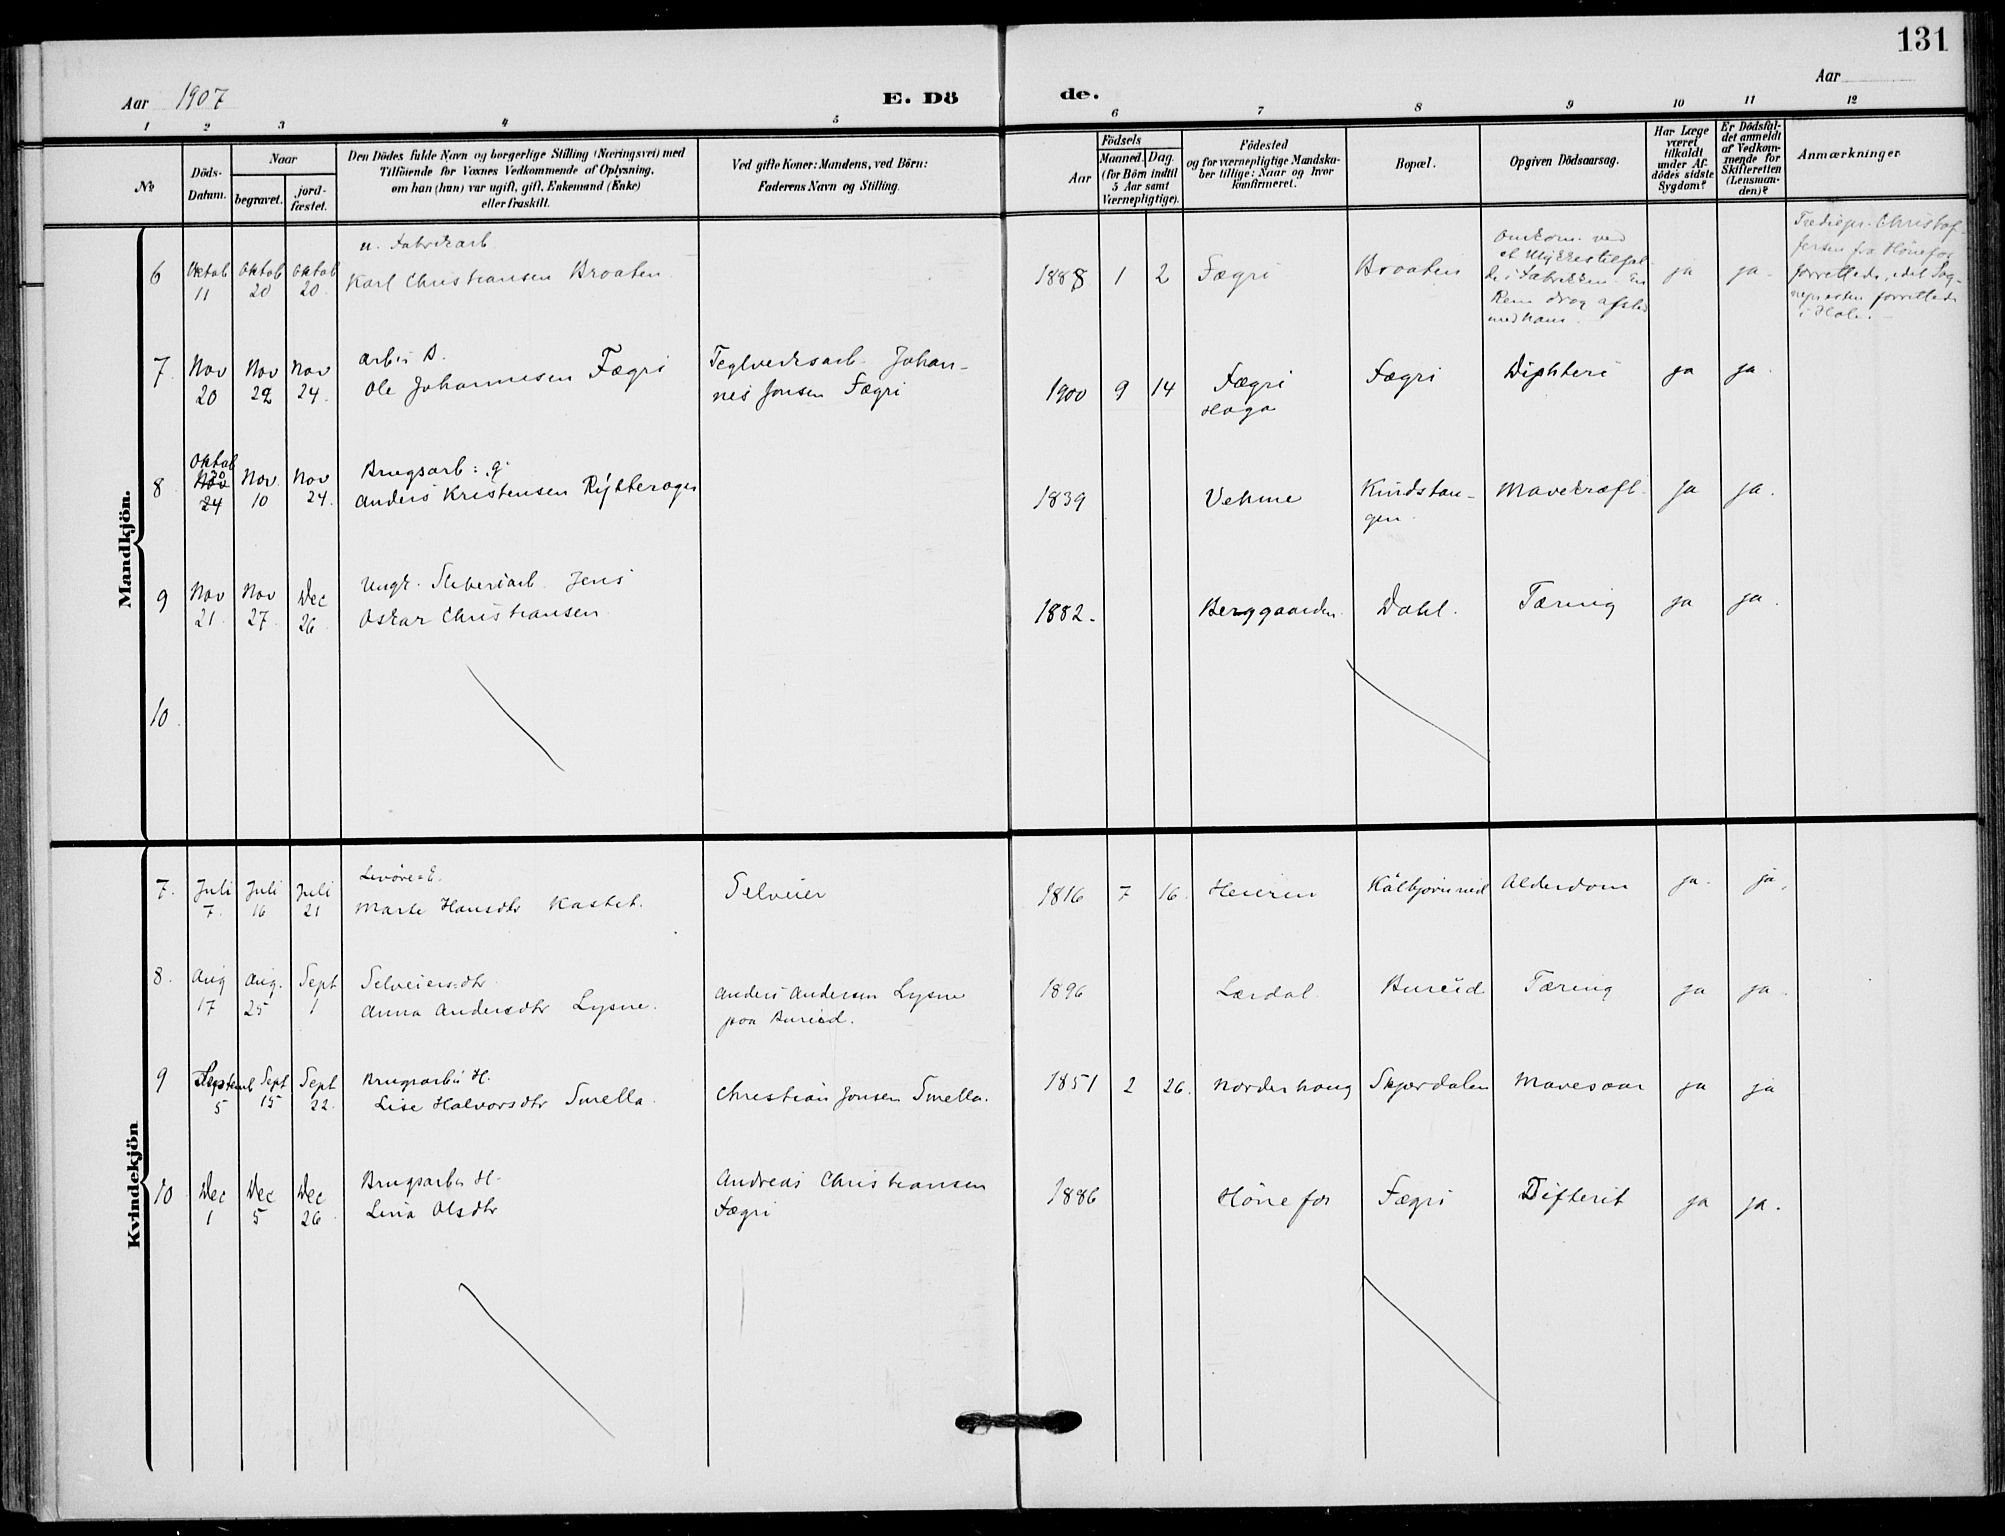 131
Aar 1907
E. Dö
de.
Aar
1 2 3 4 5 6 7 8 9 10 11 12
No
Döds-
Datum.
Naar
begravet.
jord-
fæstet.
Den Dödes fulde Navn og borgerlige Stilling (Næringsvei) med
Tilföiende for Voxnes Vedkommende af Oplysning,
om han (hun) var ugift, gift, Enkemand (Enke)
eller fraskilt.
Ved gifte Koner: Mandens, ved Börn:
Faderens Navn og Stilling.
Aar
Födsels
Maaned. Dag.
(for Börn indtil
5 Aar samt
Værnepligtige).
Födested
og for værnepligtige Mandska-
ber tillige: Naar og hvor
konfirmeret.
Bopæl.
Opgiven Dödsaarsag.
Har Læge
været
tilkaldt
under Af-
dödes sidste
Sygdom?
Er Dödsfal-
det anmeldt
af Vedkom-
mende for
Skifteretten
(Lensman-
den)?
Anmærkninger
Mandkjön.
6
Oktob
11
Oktob
20
Oktob
20
u. Fabrikarb.
Karl Christiansen Braaten
1888 1 2 Fægri Braaten
Omkom. ved
et Ulykkestilfæl-
de i Fabrikken. En
Rem drog afsted
med ham.
ja ja.
Tredjepr. Christof-
fersen fra Hönefos
forrettede, idet Sog-
nepresten forrettede
i Hole.
7.
Nov
20
Nov
22
Nov
24.
arb: B.
Ole Johannesen Fægri
Teglverksarb. Johan-
nes Jonsen Fægri
1900 9 14 Fægri
Haga
Fægri Diphteri ja ja.
8
Oktob
30
Nov
24
Nov.
10
Nov
24.
Brugsarb: g.
Anders Kristensen Rytterager
1839 Vehme Kindstan-
gen.
Mavekræft. ja ja.
9
Nov
21
Nov
27
Dec
26
Ungk. Sliberiarb. Jens
Oskar Christiansen
1882. Berggaarden Dahl. Tæring ja ja.
10.
Kvindekjön
7.
Juli
7.
Juli
16
Juli
21
Livöre=E.
Marte Hansdtr Kastet.
Selveier
1816 7 16. Heieren Kölbjörnrud Alderdom ja. ja.
8.
Aug
17
Aug.
25
Sept
1
Selveiers=dtr.
Anna Andersdtr Lysne.
Anders Andersen Lysne
paa Bureid.
1896 Lærdal. Bureid Tæring ja ja.
9
Septemb
5
Sept
15
Sept
22.
Brugsarb: H.
Lise Halvorsdtr Smella.
Christian Jonsen Smella.
1851 2 26. Norderhaug Skjærdalen Mavesaar ja ja
10
Dec
1
Dec
5
Dec
26
Brugsarb: H.
Lina Olsdtr
Andreas Christiansen
Fægri
1886 Hönefos Fægri Difterit ja ja.